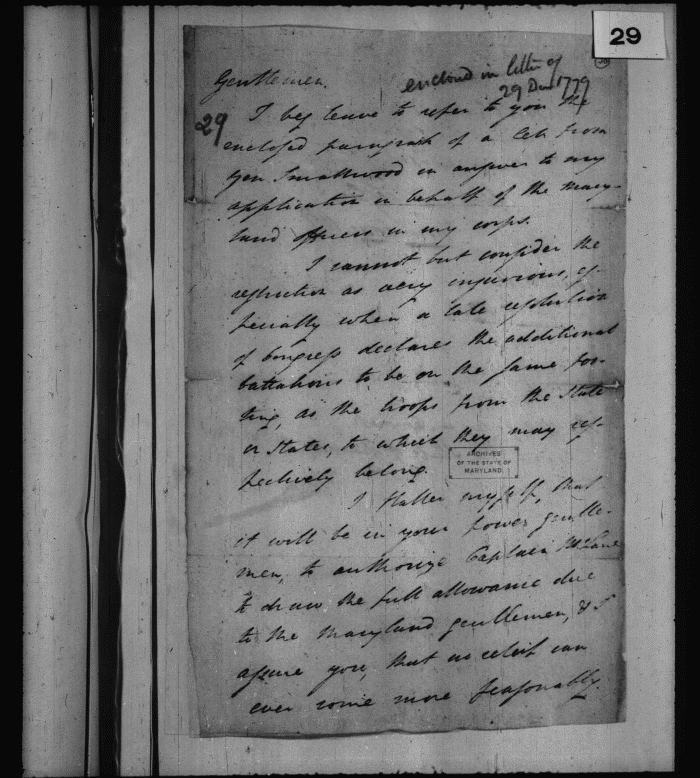 29
Gentlemen.
enclosed in letter of
29 Dec 1779
29
I beg leave to refer to you the
enclosed paragraph of a from
Gen Smallwood in answer to my
application in behalf of the Mary-
land officers in my corps.
I cannot but consider the
restriction as very injurious, es-
pecially when a late resolution
of Congress declares the additional
battalions to be on the same foo-
ting, as the troops from the State
or States, to which they may res-
pectively belong.
ARCHIVES
OF THE STATE OF
MARYLAND
I flatter myself, that
it will be in your power gentle-
men, to authorize Captain McLane
to draw the full allowance due
to the Maryland gentlemen, & I
assure you, that no relief can
ever come more seasonably.